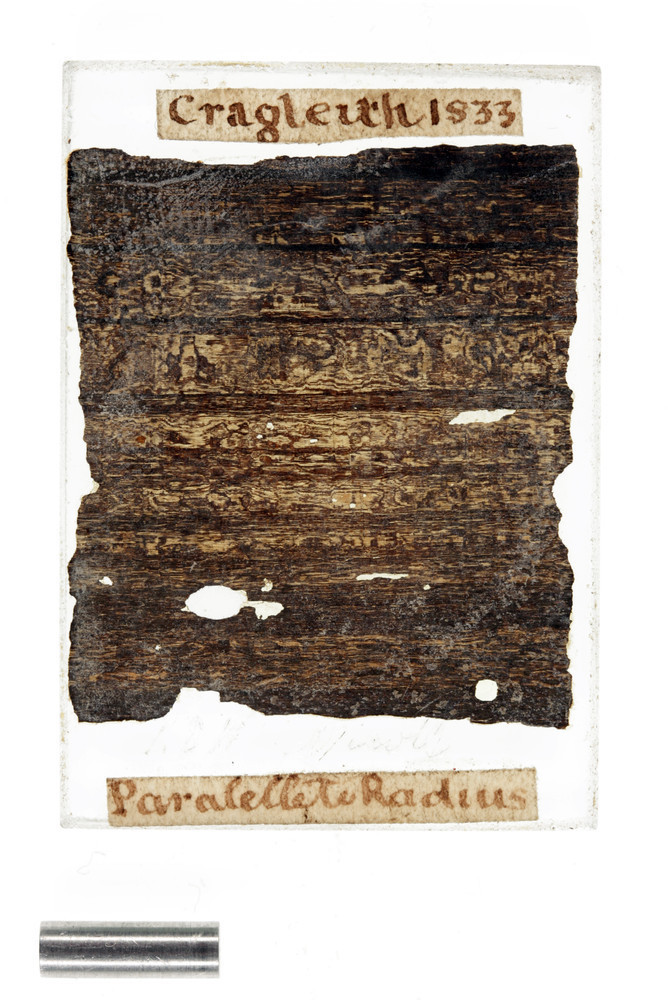 Cragleith 1833
Paralelle To Radius